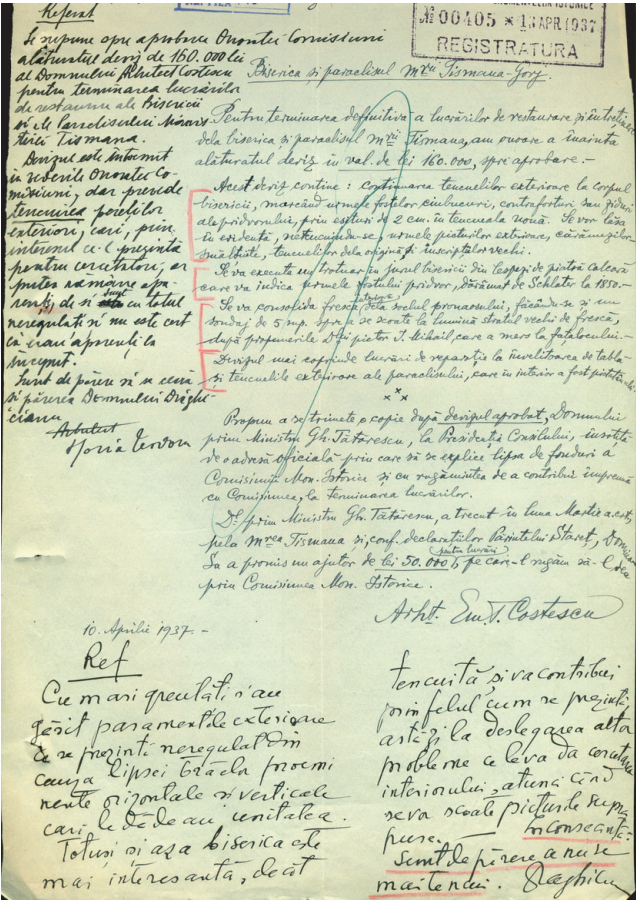 Referat
Se supune spre aprobarea Onoratei Comisiuni
alăturatul deviz de 160.000 lei
al Domnului Arhitect Costescu
pentru terminarea lucrărilor
de restaurare ale Bisericii
și ale Paraclisului
Tismana.
Devizul este întocmit
în vederile Onoratei Co-
misiuni, dar prevede
tencuirea pereților
exteriori, cari, prin
interesul ce-l prezintă
pentru cercetători, ar
putea rămâne apa-
renți, de și sunt cu totul
neregulați și nu este cert
că erau aparenți la
început.
Sunt de părere să se ceară
și părerea Domnului Drăghi-
ceanu
Arhitect
Horia Teodoru
№ 00405 * 1 APR 1937
REGISTRATURA
Biserica și paraclisul Mrei Tismana-Gorj
Pentru terminarea definitivă a lucrărilor de restaurare și întreținere
dela biserica și paraclisul Mrei Tismana, am onoare a înainta
alăturatul deviz în val. de lei 160.000, spre aprobare.-
Acest deviz conține: continuarea tencuelilor exterioare la corpul
bisericii, marcând urme fostelor ciubucuri, contraforturi sau ziduri
ale pridvorului, prin eșituri de 2 cm. în tencuiala nouă. Se vor lăsa
în evidență, netencuindu-se, urmele picturilor exterioare, cărămizilor
smălțuite, tencuelilor dela origină și inscripțiilor vechi.
Se va executa un trotuar în jurul bisericii din lespezi de piatră calcară
care va indica urmele fostului pridvor, dărâmat de Schlater la 1850.-
Se va consolida fresca dela soclul pronaosului, făcându-se și un
sondaj de 5 mp. spre a se scoate la lumină stratul vechi de frescă,
după propunerile D-lui pictor I. Mihail, care a mers la fața locului.-
Devizul mai coprinde lucrări de reparație la învelitoarea de tablă
și tencuelile exterioare ale paraclisului, care în interior a fost
x x x
Propun a se trimete o copie după devizul aprobat, Domnului
prim Ministru Gh. Tătărescu, la Președenția Consiliului, însoțită
de o adresă oficială prin care să se explice lipsa de fonduri a
Comisiunii Mon. Istorice și cu rugămintea de a contribui împreună
cu Comisiunea, la terminarea lucrărilor.
Dl. prim Ministru Gh. Tătărescu, a trecut în luna Martie a.c.
pela Mrea Tismana și, conf. declarațiilor Părintelui Stareț,
Sa a promis un ajutor de lei 50.000 pentru lucrări, pe care-l rugăm să-l dea
prin Comisiunea Mon. Istorice.
Arht. Em. Costescu
10. Aprilie 1937.-
Ref
Cu mari greutăți s'au
găsit paramentele exterioare
ce se prezintă neregulat din
cauza lipsei brâelor proemi
nente orizontale și verticale
cari le dădeau unitatea.
Totuși și așa biserica este
mai interesantă, decât
tencuită, și va contribui
prin felul cum se prezintă
astăzi la deslegarea altor
probleme ce le va da cercetarea
interiorului, atunci când
se vor scoate picturile supra
puse. În consecință:
Sunt de părere a nu se
mai tencui. Drăghiceanu